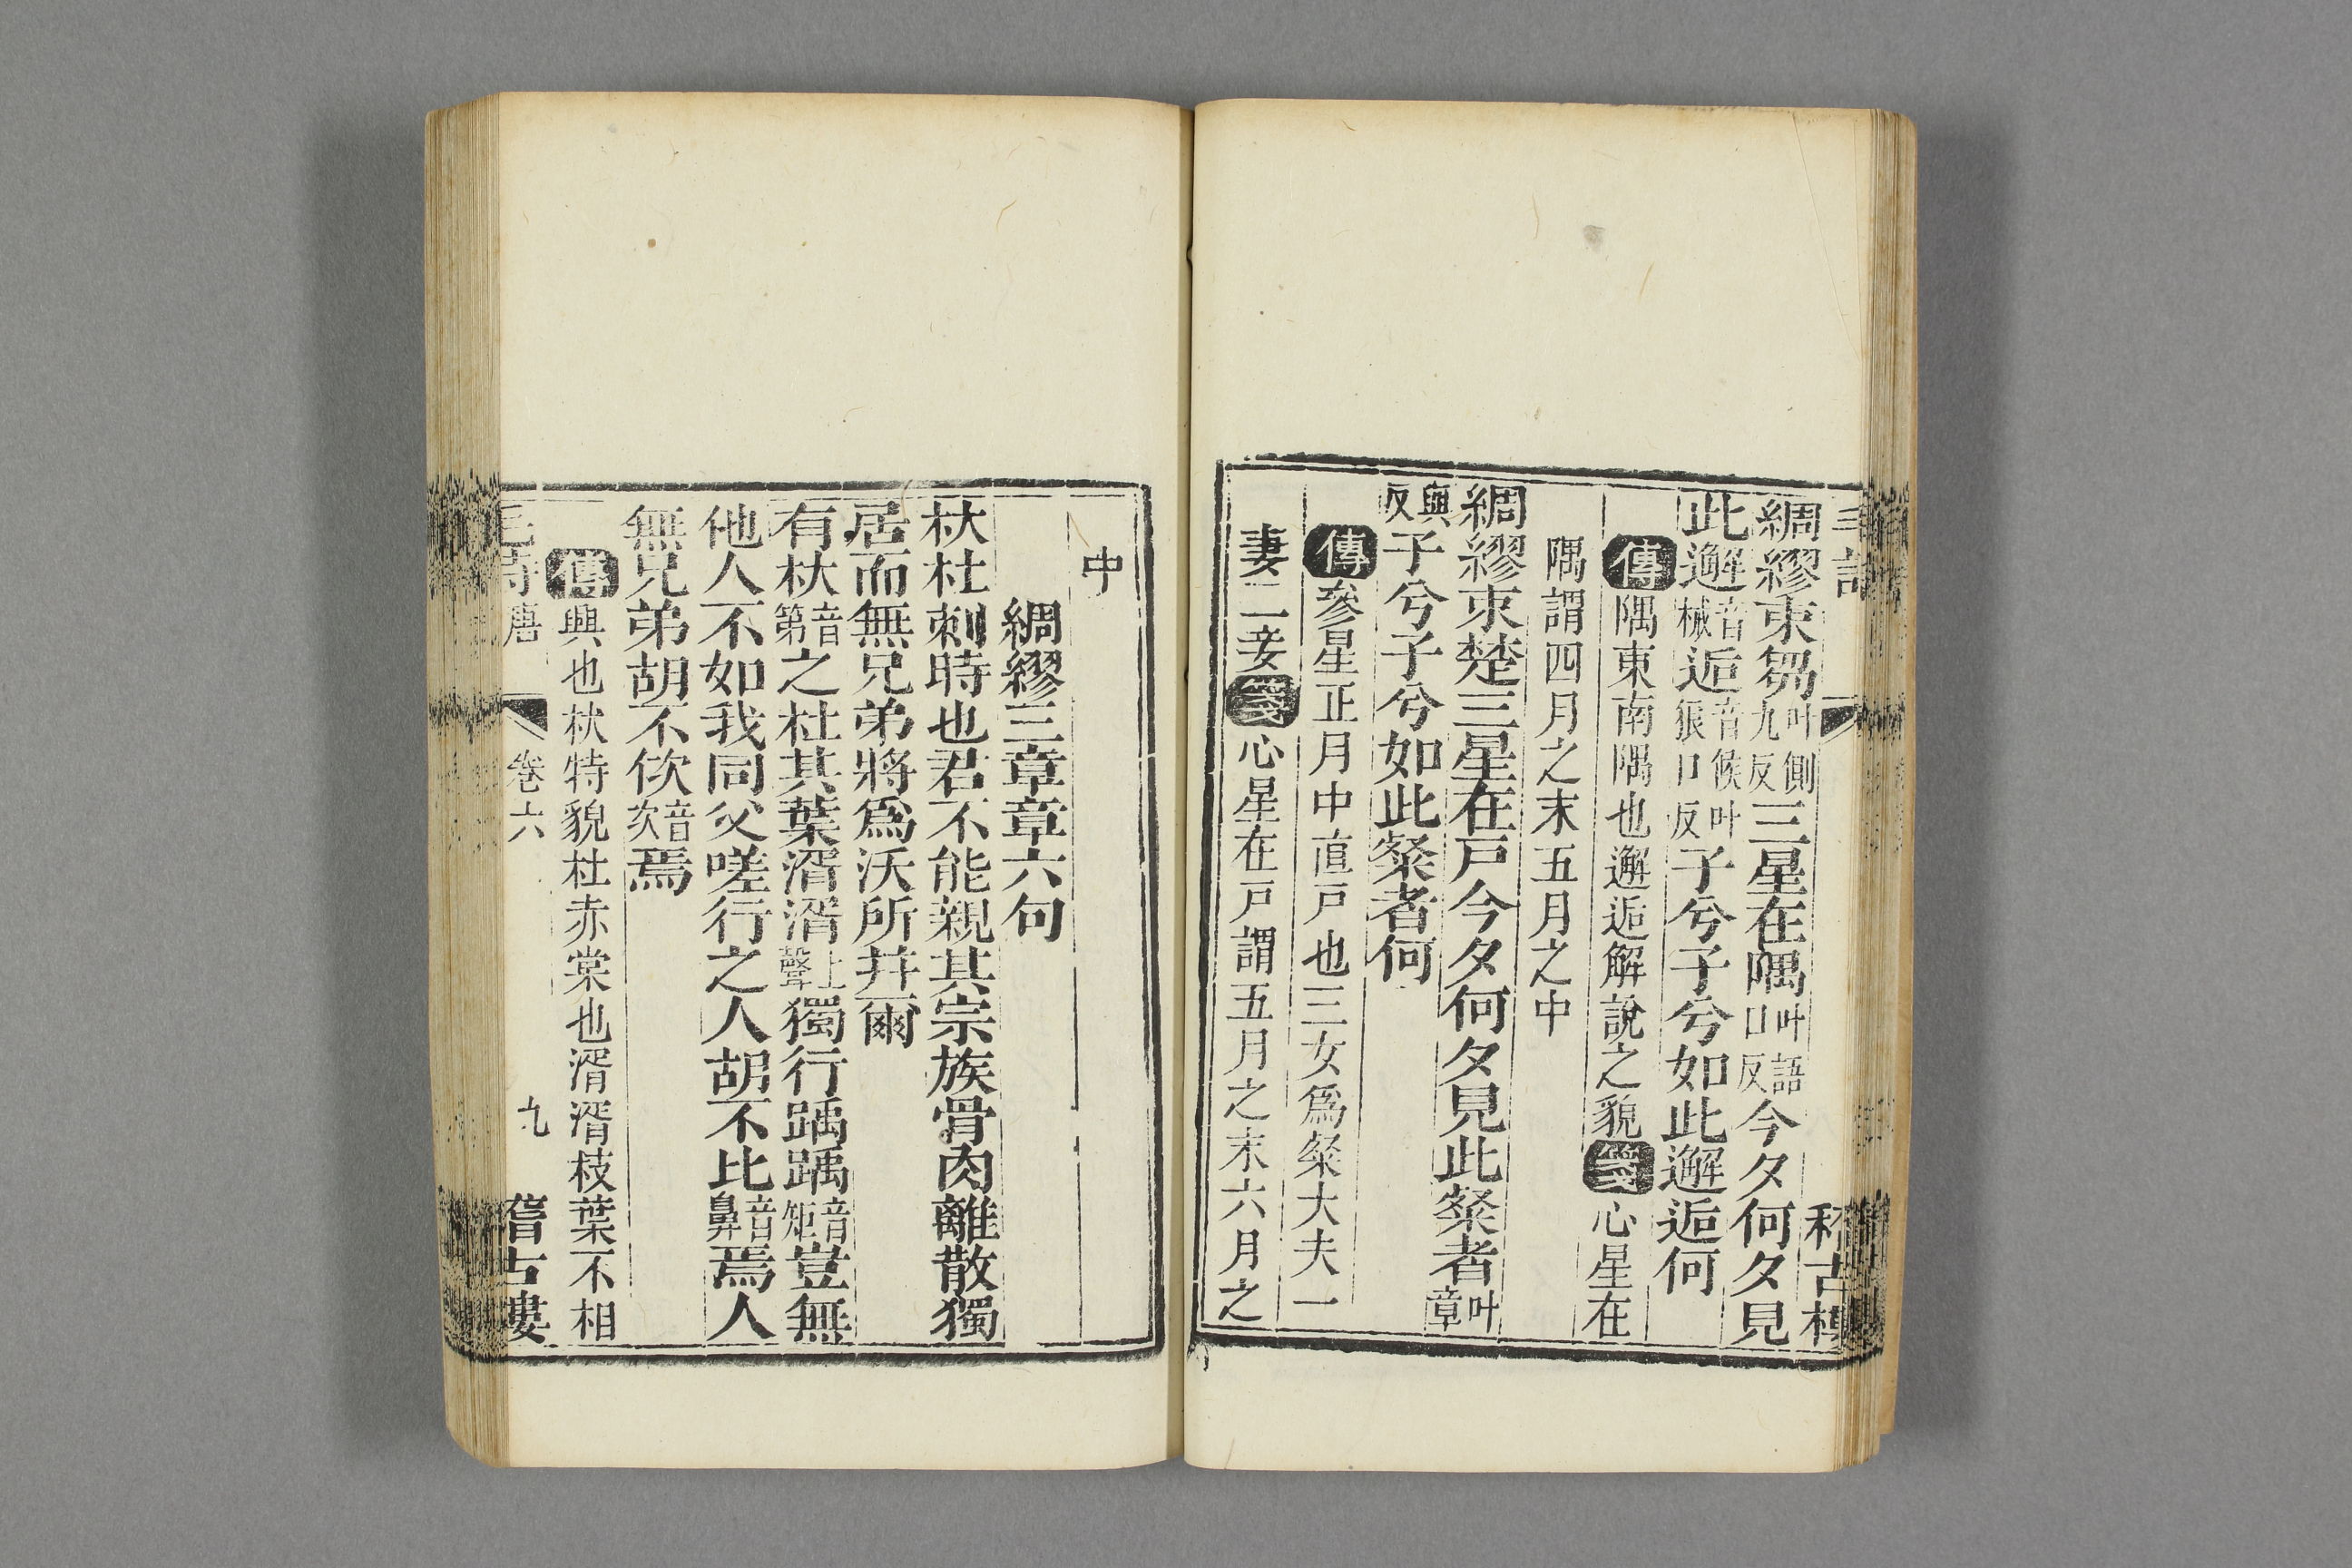 綢繆束芻叶側九反三星在隅叶語口反今夕何夕見
此邂音械逅音候叶狼口反子兮子兮如此邂逅何
傳隅東南隅也邂逅解說之貌箋心星在
隅謂四月之末五月之中
綢繆束楚三星在戸今夕何夕見此粲者叶章
與反子兮子兮如此粲者何
傳參星正月中直戸也三女爲粲大夫一
妻二妾箋心星在戸謂五月之末六月之
中
綢繆三章章六句
杕杜刺時也君不能親其宗族骨肉離散獨
居而無兄弟將爲沃所并爾
有杕音第之杜其葉湑湑上聲獨行踽踽音矩豈無
他人不如我同父嗟行之人胡不比音鼻焉人
無兄弟胡不佽音次焉
傳興也杕特貌杜赤棠也湑湑枝葉不相
毛詩唐 卷六 九 稽古樓